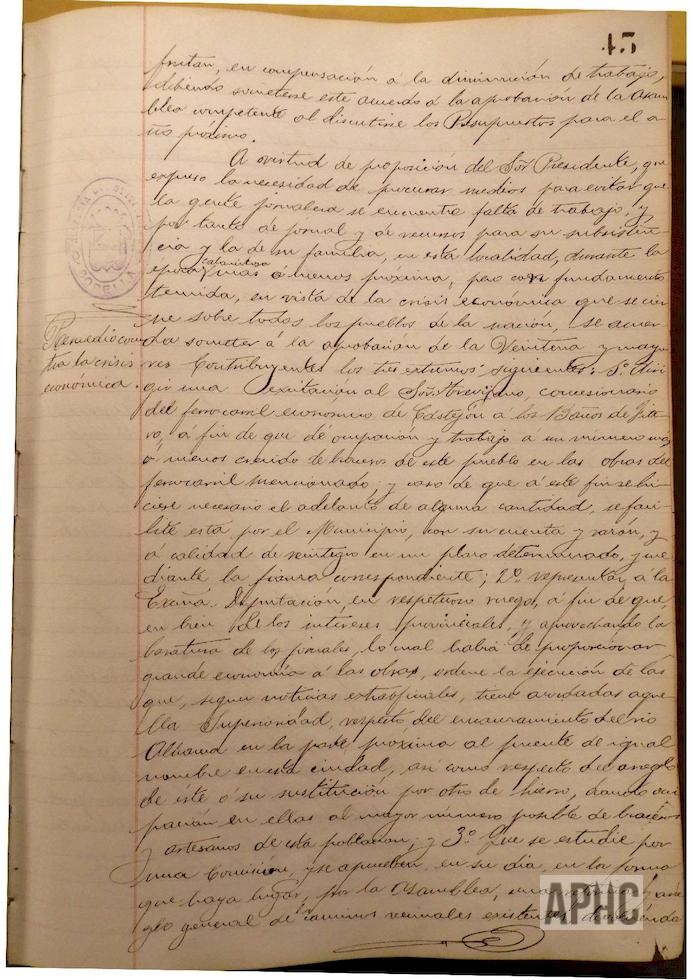 45
frutan, en compensación á la diminución de trabajo,
debiendo someterse este acuerdo á la aprobación de la Asam-
blea competente al discutirse los Presupuestos para el a-
ño próximo.
A virtud de proposición del Sor Presidente, que
expuso la necesidad de procurar medios para evitar que
la gente jornalera se encuentre falta de trabajo, y
por tanto de jornal y de recursos para su subsisten-
cia y la de su familia, en esta localidad, durante la
calamitosa
epoca mas ó menos próxima, pero con fundamento
temida, en vista de la crisis económica que se cier-
ne sobre todos los pueblos de la nación, se acuer-
Remedio con-
tra la crisis
económica.
da someter á la aprobación de la Veintena y mayo-
res Contribuyentes los tres extremos siguientes: 1º Diri-
gir una excitación al Sor concesionario
del ferrocarril economico de Castejón á los Baños de Fite-
ro, á fin de que dé ocupación y trabajo a un numero mas
ó menos crecido de braceros de este pueblo en las obras del
ferrocarril mencionado; y caso de que á este fin se hi-
ciere necesario el adelanto de alguna cantidad, se faci-
lite esta por el Municipio, con su cuenta y razón, y
á calidad de reintegro en un plazo determinado, y me-
diante la fianza correspondiente; 2º representar á la
Excma. Diputación, en respetuoso ruego, á fin de que,
en bien de los intereses provinciales, y aprovechando la
baratura de los jornales, lo cual habia de proporcionar
grande economía á las obras, ordene la ejecución de las
que, segun noticias extraoficiales, tiene acordadas aque-
lla Superioridad, respecto del encauzamiento del rio
Alhama en la parte proxima al puente de igual
nombre en esta ciudad, asi como respecto del arreglo
de éste ó su sustitución por otro de hierro, dando ocu-
pación en ellas al mayor numero posible de braceros
y artesanos de esta poblacion; y 3º Que se estudie por
una Comisión, y se aprueben en su dia, en la forma
que haya lugar, por la Asamblea, una y arre-
glo general de caminos vecinales existentes,
APHC